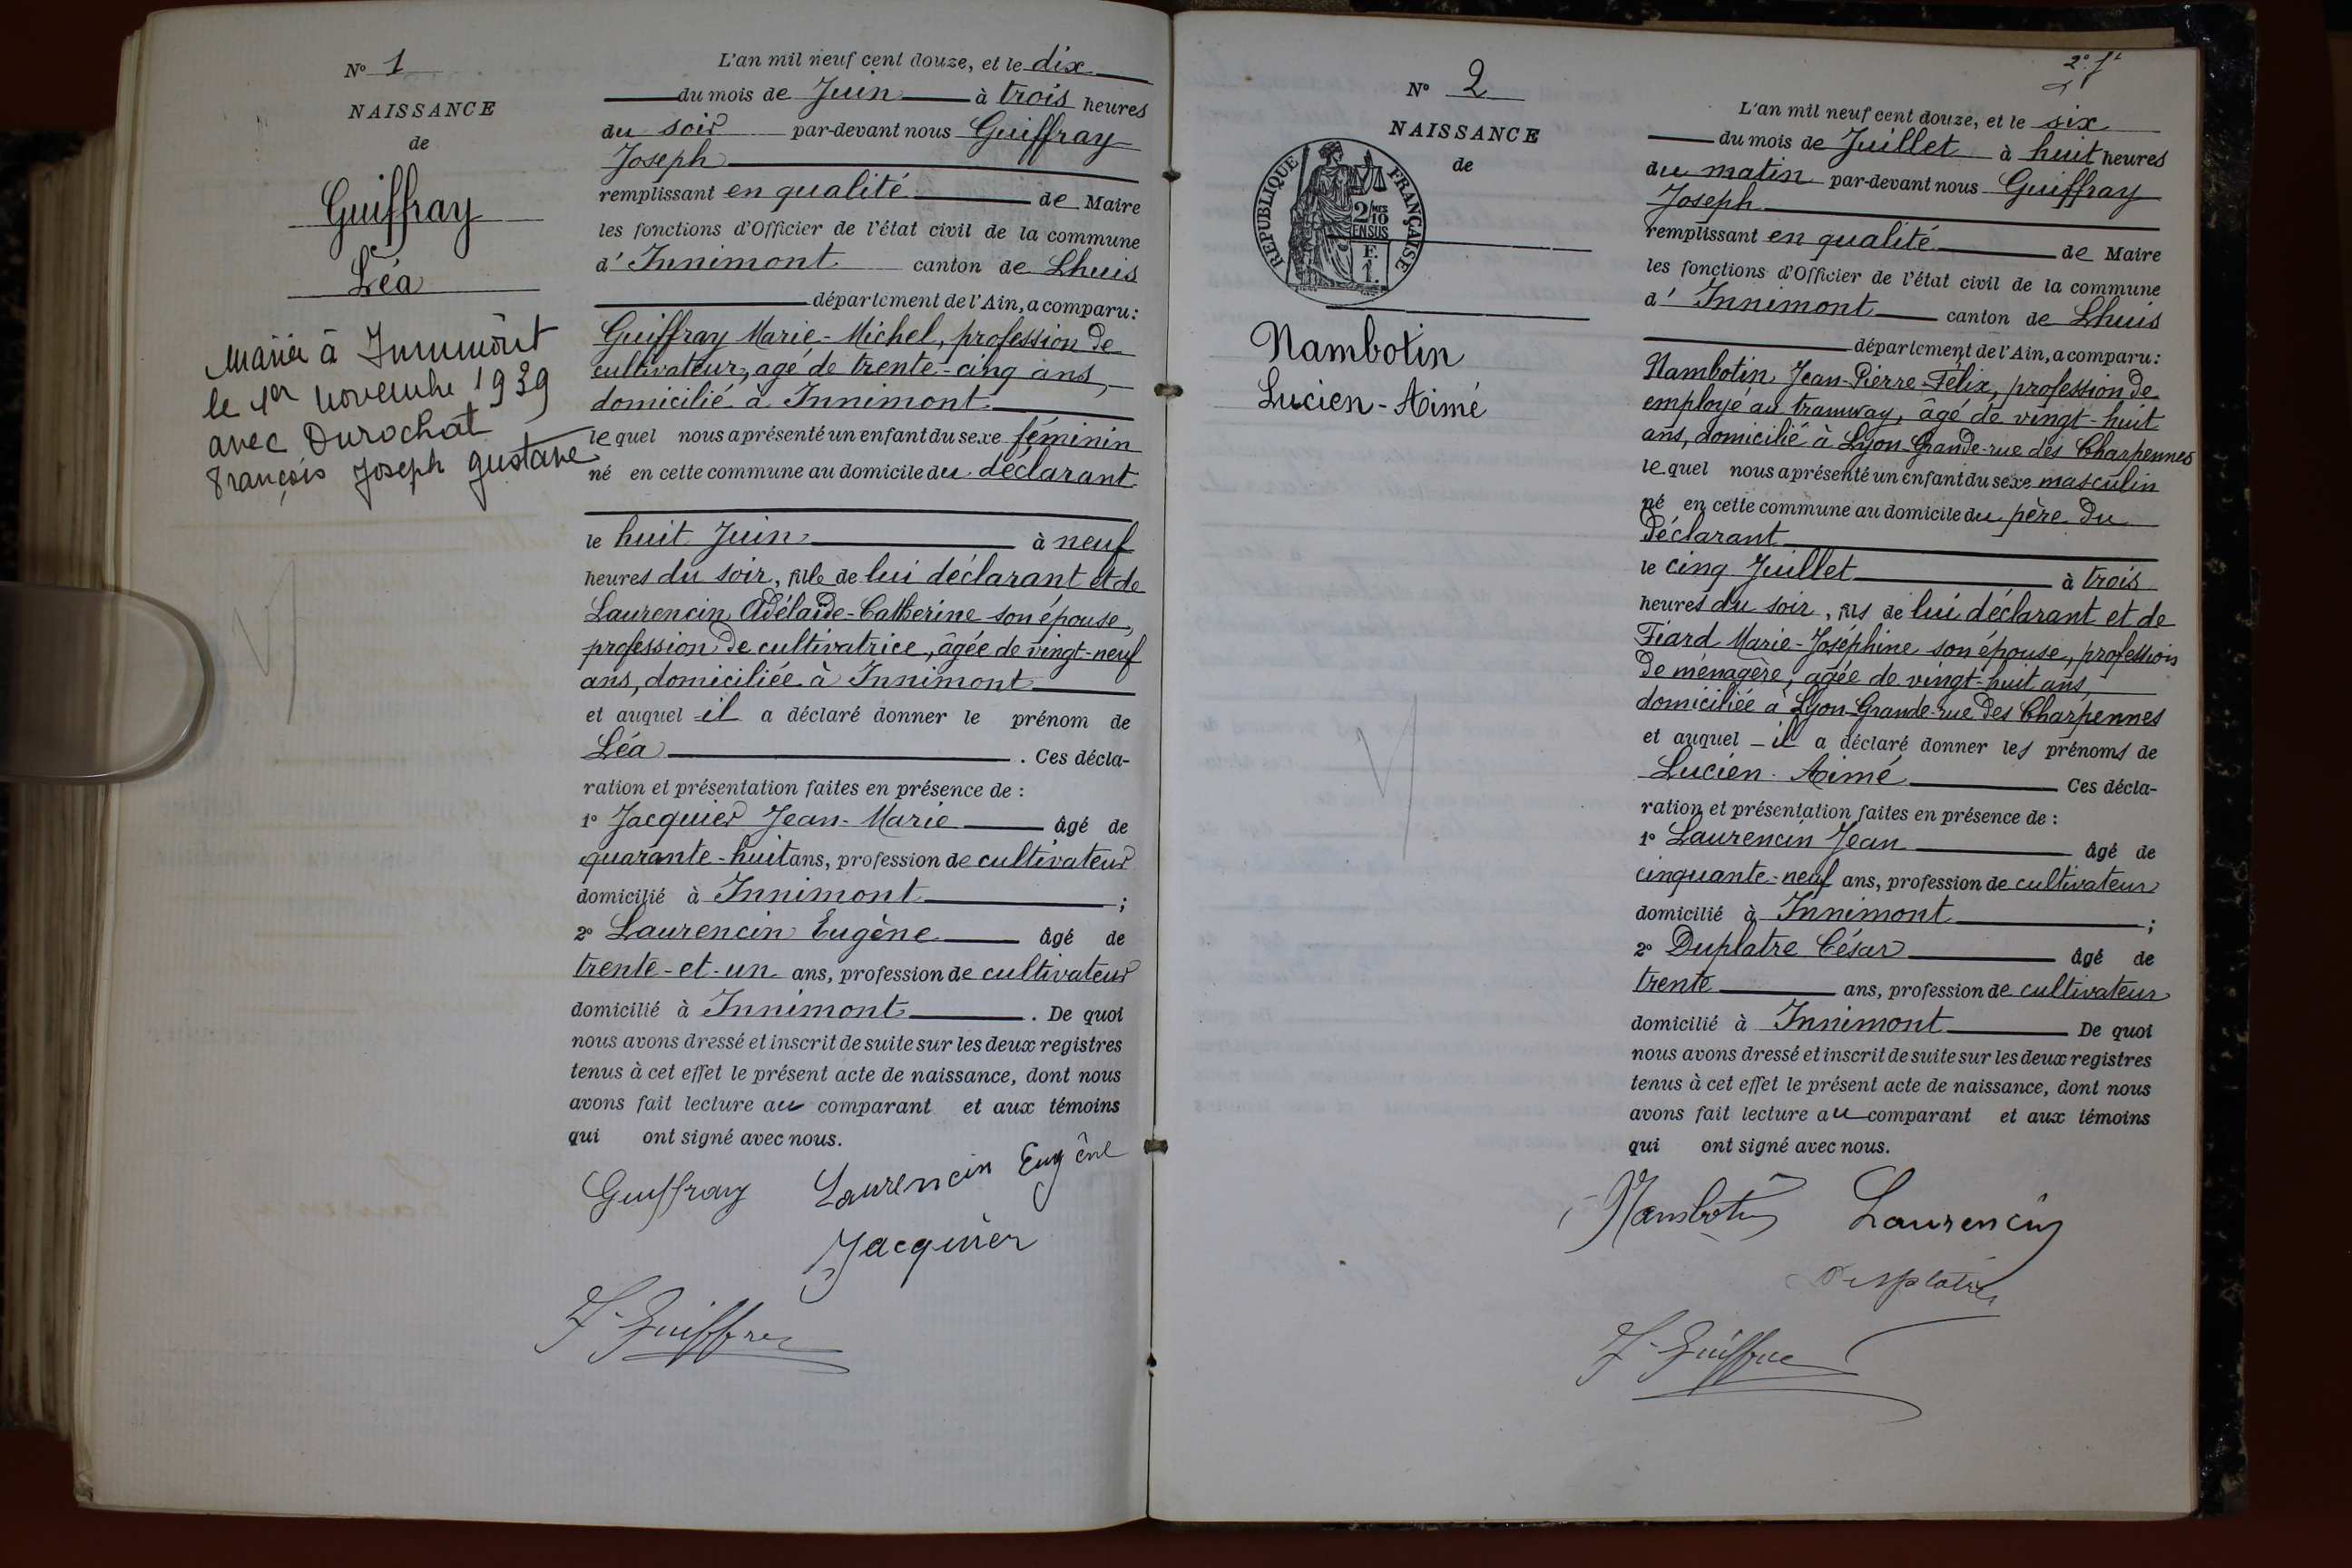 N° 1
NAISSANCE
de
Guiffray
Léa
Mariée à Innimont
le 1er novembre 1939
avec Durochat
François Joseph Gustave
L'an mil neuf cent douze, et le dix
du mois de Juin à trois heures
du soir par-devant nous Guiffray
Joseph
remplissant en qualité de Maire
les fonctions d'Officier de l'état civil de la commune
d'Innimont canton de Lhuis
département de l'Ain, a comparu:
Guiffray Marie-Michel, profession de
cultivateur, agé de trente-cinq ans,
domicilié à Innimont
lequel nous a présenté un enfant du sexe féminin
né en cette commune au domicile du déclarant
le huit Juin à neuf
heures du soir, fille de lui déclarant et de
Laurencin Adélaïde-Catherine son épouse,
profession de cultivatrice, âgée de vingt-neuf
ans, domiciliée à Innimont
et auquel il a déclaré donner le prénom de
Léa . Ces décla-
ration et présentation faites en présence de :
1° Jacquier Jean-Marie âgé de
quarante-huit ans, profession de cultivateur
domicilié à Innimont ;
2° Laurencin Eugène âgé de
trente-et-un ans, profession de cultivateur
domicilié à Innimont . De quoi
nous avons dressé et inscrit de suite sur les deux registres
tenus à cet effet le présent acte de naissance, dont nous
avons fait lecture au comparant et aux témoins
qui ont signé avec nous.
Guiffray Laurencin Eugène
Jacquier
J. Guiffray
2° ft
N° 2
NAISSANCE
de
RÉPUBLIQUE FRANÇAISE
2/10 EN SUS
F.
1.
Nambotin
Lucien-Aimé
L'an mil neuf cent douze, et le six
du mois de Juillet à huit heures
du matin par-devant nous Guiffray
Joseph
remplissant en qualité de Maire
les fonctions d'Officier de l'état civil de la commune
d'Innimont canton de Lhuis
département de l'Ain, a comparu:
Nambotin Jean-Pierre-Félix, profession de
employé au tramway, âgé de vingt-huit
ans, domicilié à Lyon Grande-rue des Charpennes
lequel nous a présenté un enfant du sexe masculin
né en cette commune au domicile du père du
déclarant
le cinq Juillet à trois
heures du soir, fils de lui déclarant et de
Fiard Marie-Joséphine son épouse, profession
de ménagère, agée de vingt-huit ans,
domiciliée à Lyon Grande-rue des Charpennes
et auquel il a déclaré donner les prénoms de
Lucien-Aimé Ces décla-
ration et présentation faites en présence de :
1° Laurencin Jean âgé de
cinquante-neuf ans, profession de cultivateur
domicilié à Innimont ;
2° Duplatre César âgé de
trente ans, profession de cultivateur
domicilié à Innimont De quoi
nous avons dressé et inscrit de suite sur les deux registres
tenus à cet effet le présent acte de naissance, dont nous
avons fait lecture au comparant et aux témoins
qui ont signé avec nous.
Nambotin Laurencin
J. Guiffray